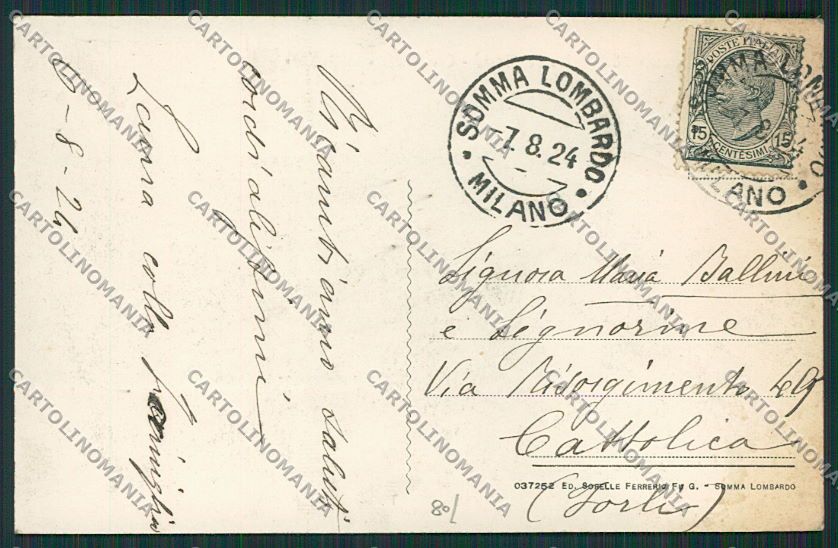 Ricambiamo saluti
cordialissimi
Laura colla famiglia
6-8-24
SOMMA LOMBARDO
-7.8.24
MILANO
POSTE ITALIANE
15 CENTESIMI 15
SOMMA LOMBARDO
MILANO
Signora Maria Ballini
e Signorine
Via Risorgimento 49
Cattolica
(Forlì)
037252 ED. SORELLE FERRERIO FU G. - SOMMA LOMBARDO
CARTOLINOMANIA